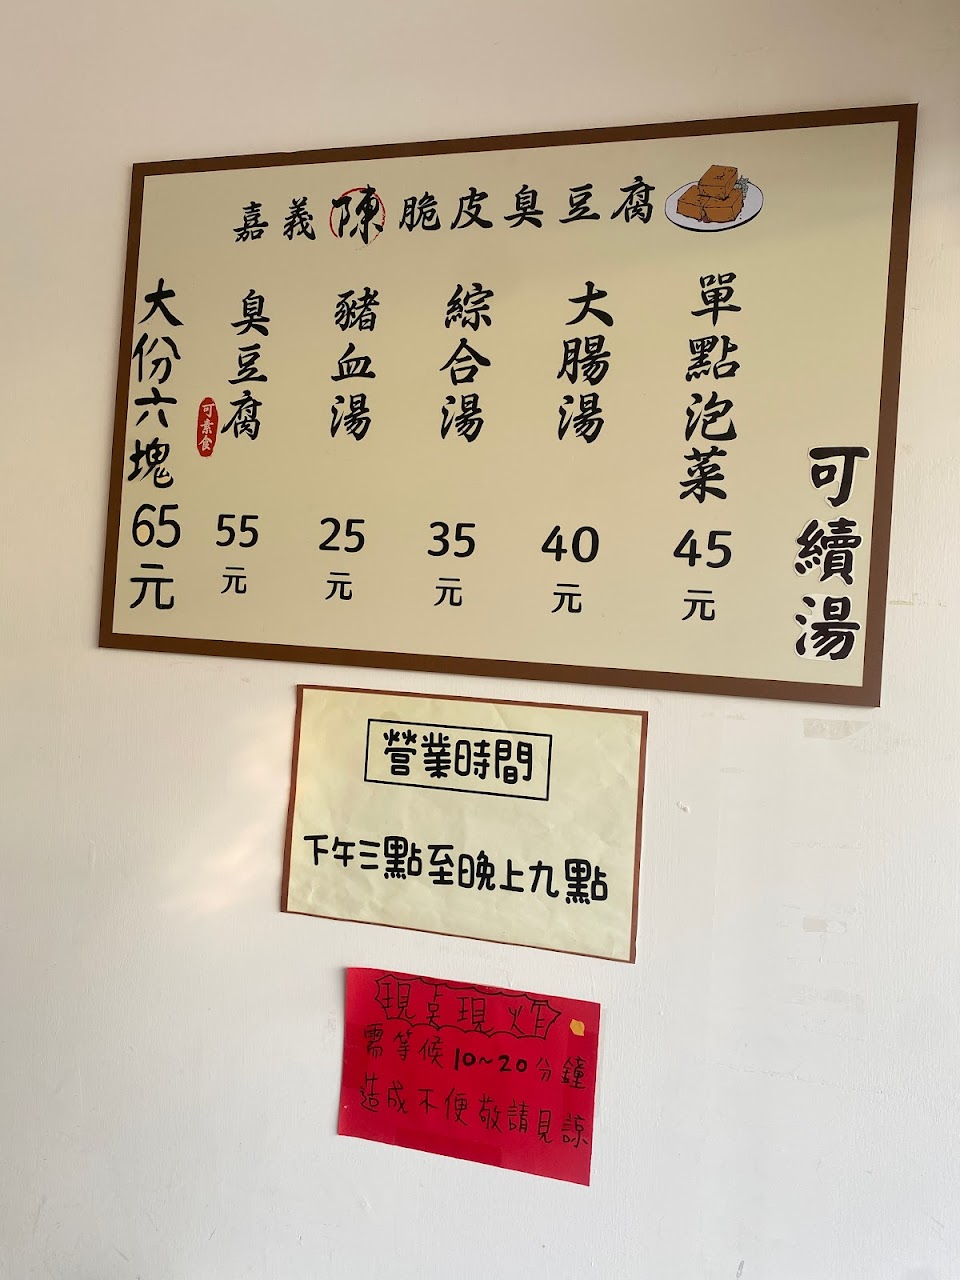 嘉義陳脆皮臭豆腐
大份六塊65元
臭豆腐55元
可素食
豬血湯25元
綜合湯35元
大腸湯40元
單點泡菜45元
可續湯
營業時間
下午三點至晚上九點
現點現炸
需等候10~20分鐘
造成不便敬請見諒